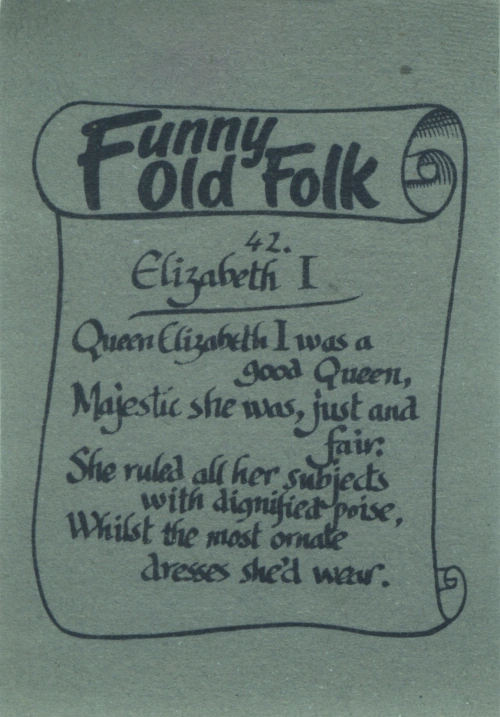 Funny
Old Folk
42.
Elizabeth I
Queen Elizabeth I was a
good Queen,
Majestic she was, just and
fair.
She ruled all her subjects
with dignified poise,
Whilst the most ornate
dresses she'd wear.